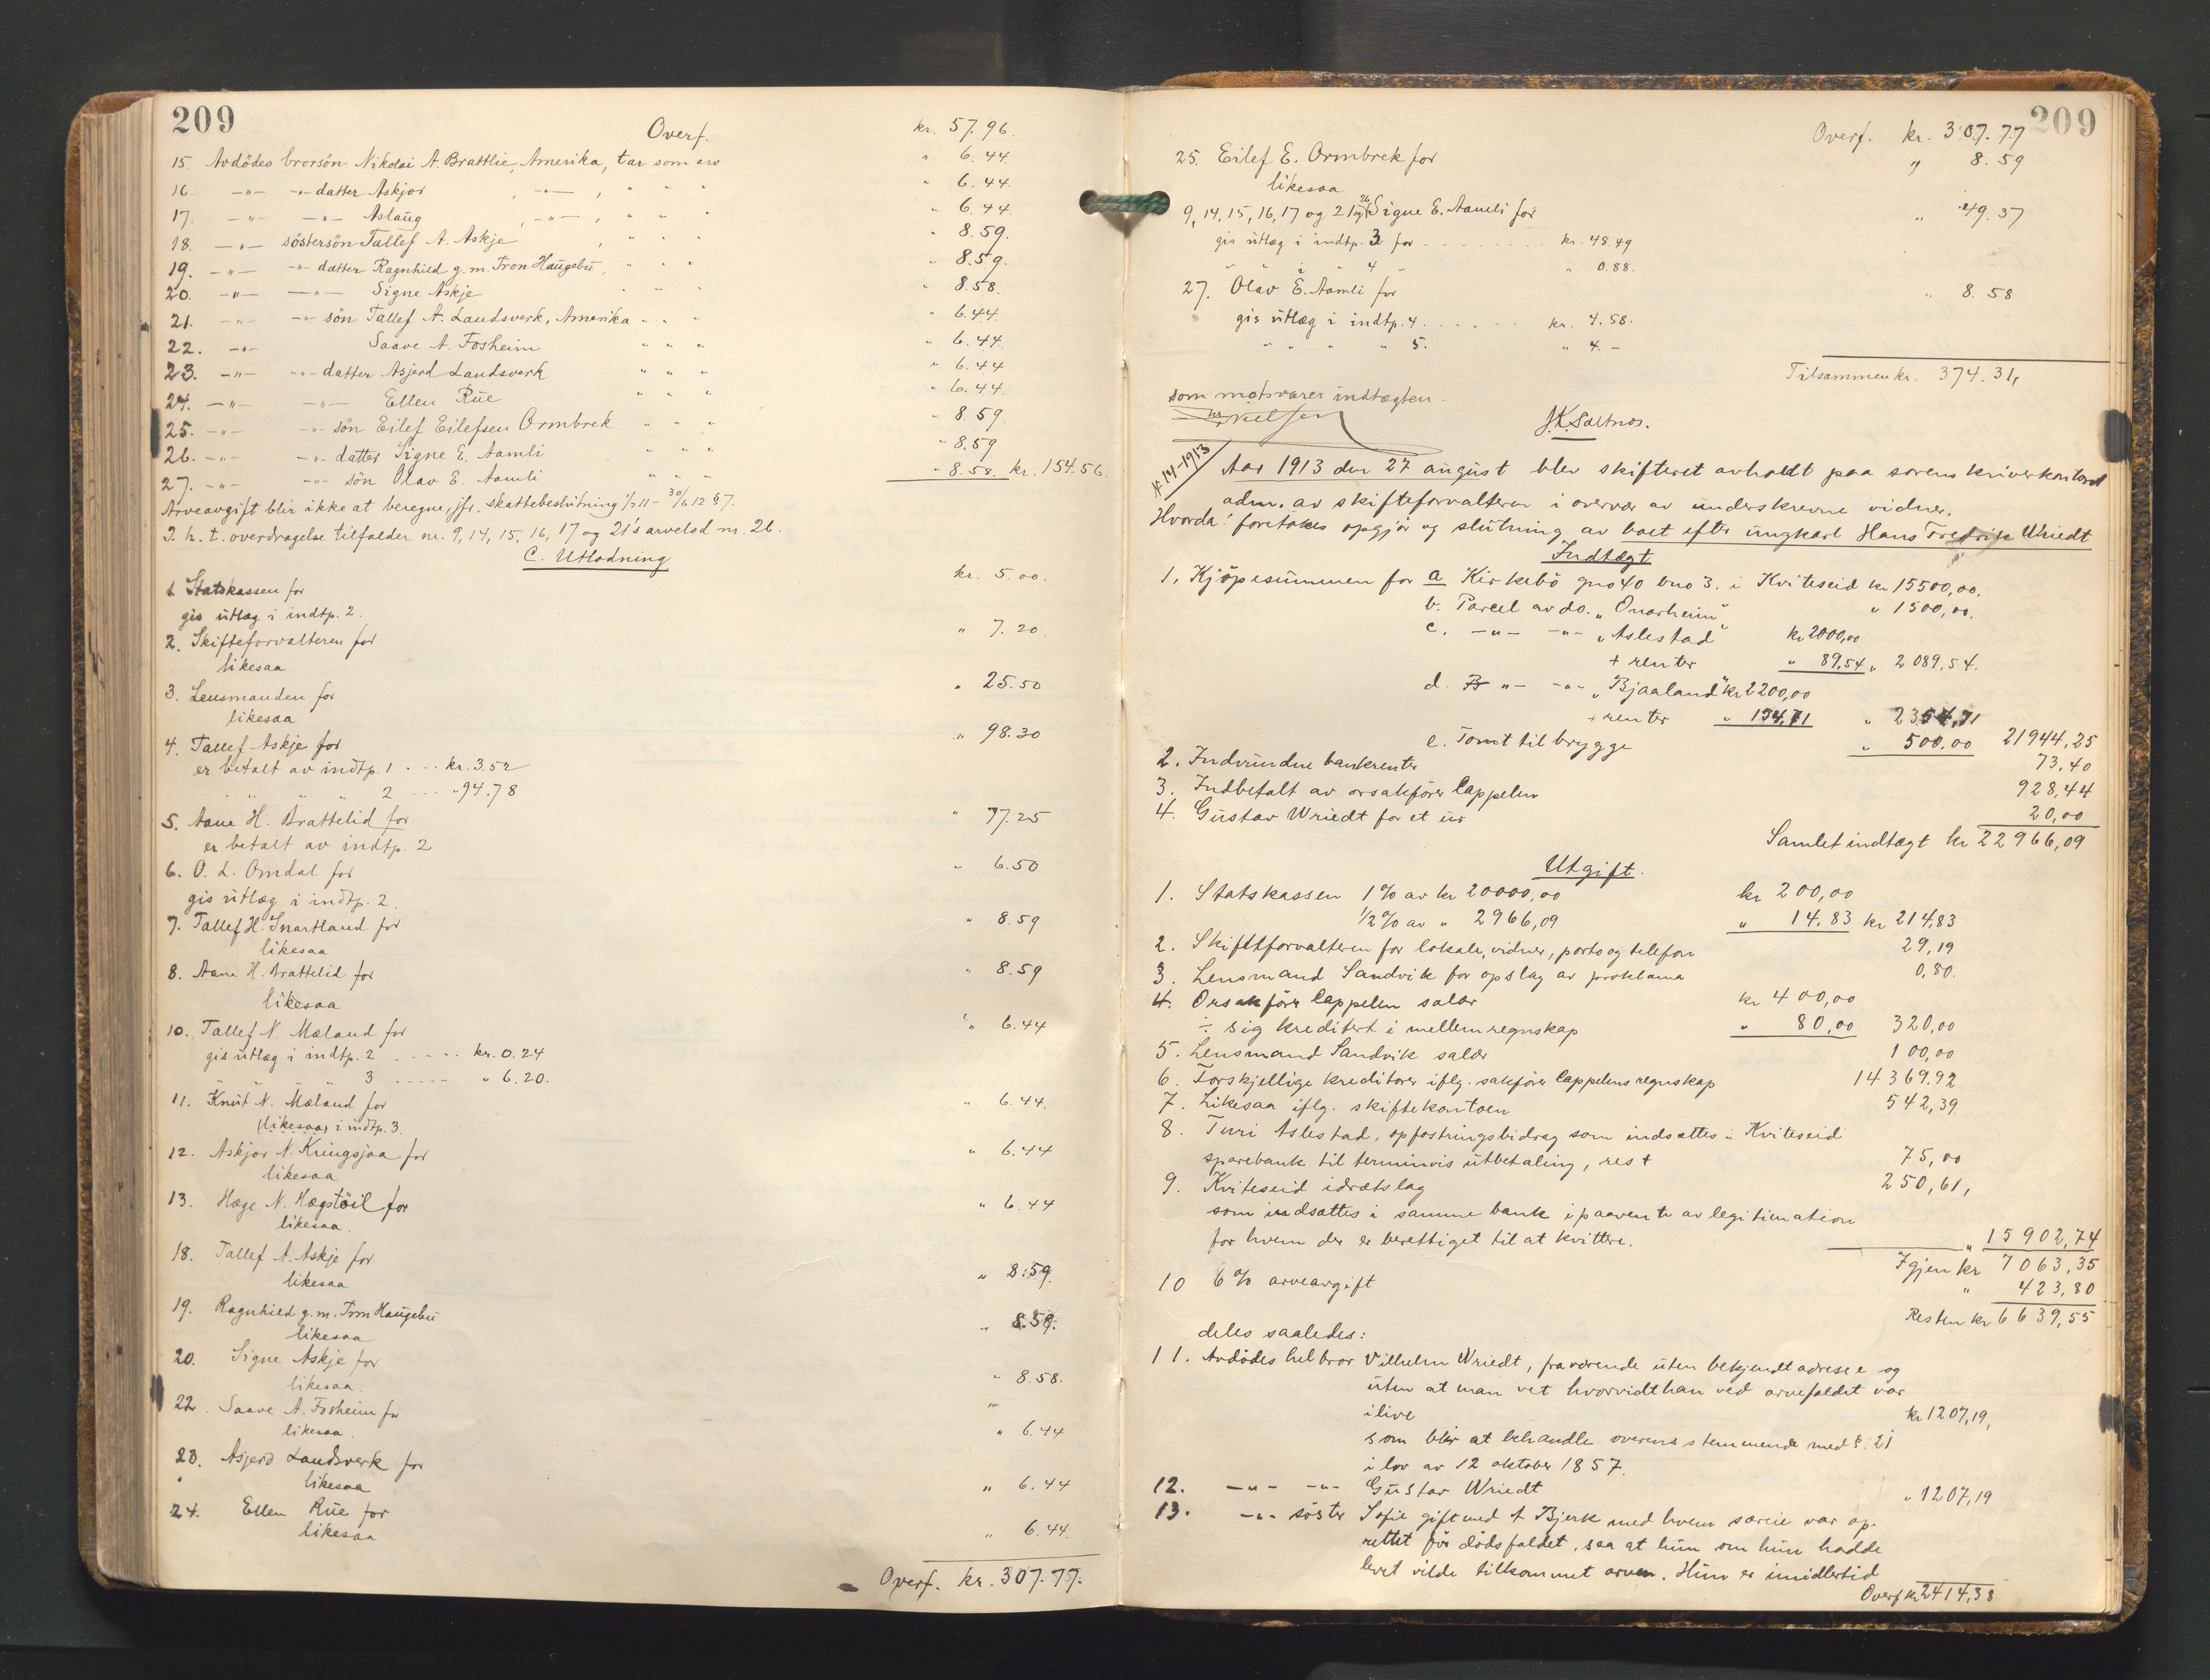 209
Overf. kr. 57.96.
15. Avdödes brorsön Nikolai A. Brattlie, Amerika, tar som arv " 6.44.
16. -"- -"- datter Askjer , -"- , " " " " 6.44.
17. -"- -"- Aslaug , -"- , " " " " 6.44
18. -"- söstersön Tallef A. Askje , " " " " 8.59.
19. -"- -"- datter Ragnhild g.m. Tron Haugebu, " " " " 8.59.
20. -"- -"- Signe Askje " " " " 8.58.
21. -"- -"- sön Tallef A. Landsverk, Amerika " " " " 6.44.
22. -"- Saave A. Fosheim " " " " 6.44.
23. -"- -"- datter Asjerd Landsverk " " " " 6.44
24. -"- -"- Ellen Rue " " " " 6.44.
25. -"- -"- sön Eilef Eilefsen Ormbrek " " " " 8.59
26. -"- -"- datter Signe E. Aamli " " " " 8.59
27. -"- -"- sön Olav E. Aamli " " " " 8.58. kr. 154.56.
Arveavgift blir ikke at beregne, jfr. skattebeslutning 1/7 11 - 30/6 12 § 7.
I h. t. overdragelse tilfalder nr. 9, 14, 15, 16, 17 og 21's arvelod nr. 26.
C. Utlodning
1. Statskassen for kr. 5.00.
gis utlæg i indtp. 2.
2. Skifteforvalteren for " 7.20.
likesaa
3. Lensmanden for " 25.50
likesaa
4. Tallef Askje for " 98.30
er betalt av indtp. 1 . .. kr. 3.52
" " " " 2 ... " 94.78
5. Aane H. Brattelid for " 77.25
er betalt av indtp. 2
6. O. L. Omdal for " 6.50
gis utlæg i indtp. 2.
7. Tallef H. Snartland for " 8.59
likesaa
8. Aane H. Brattelid for " 8.59
likesaa
10. Tallef N. Mæland for " 6.44
gis utlæg i indtp. 2 ..... kr. 0.24
" " " " 3 ..... " 6.20.
11. Knut N. Mæland for " 6.44.
likesaa, i indtp. 3.
12. Askjer N. Kringsjaa for " 6.44
likesaa
13. Hæge N. Hægstöil for " 6.44
likesaa.
18. Tallef A. Askje for " 8.59.
likesaa
19. Ragnhild g.m. Tron Haugebu " 8.59.
likesaa
20. Signe Askje for " 8.58.
likesaa.
22. Saave A. Fosheim for " 6.44
likesaa.
23. Asjerd Landsverk for " 6.44
likesaa
24. Ellen Rue for " 6.44.
likesaa
Overf. kr. 307.77.
209
Overf. kr. 307.77
25. Eilef E. Ormbrek for " 8.59
likesaa
9, 14, 15, 16, 17 og 21 og 26 Signe E. Aamli for " 49.37
gis utlæg i indtp. 3 for ........ kr. 48.49
" " i " 4 " " 0.88.
27. Olav E. Aamli for " 8.58
gis utlæg i indtp. 4 ...... kr. 4.58.
" " " " 5. " 4.-
Tilsammen kr. 374.31,
som motsvarer indtægten.
J.K. Saltnes.
№ 14-1913
Aar 1913 den 27 august blev skifteret avholdt paa sorenskriverkontoret
adm. av skifteforvalteren i overvær av underskrevne vidner.
Hvorda: foretokes opgjör og slutning av boet efter ungkarl Hans Fredrik Wriedt
Indtægt
1. Kjöpesummen for a Kirkebö gno 40 bno 3. i Kviteseid kr 15500,00.
b. Parcel av do. "Onarheim" " 1500,00.
c. -"- -"- "Aslestad" kr 2000,00
+ renter " 89,54 " 2089,54.
d. -"- -"- "Bjaaland" kr 2200,00
+ renter " 154,71 " 2354,71
e. Tomt til brygge " 500.00 21944,25
2. Indvundne bankrenter 73,40
3. Indbetalt av orsakförer Cappelen 928,44
4. Gustav Wriedt for et ur 20,00
Samlet indtægt kr 22966,09
Utgift.
1. Statskassen 1% av kr 20000,00 kr 200,00
1/2% av " 2966,09 " 14.83 kr 214,83
2. Skifteforvalteren for lokale, vidner, porto og telefon 29,19
3. Lensmand Sandvik for opslag av proklama 0,80.
4. Orsakförer Cappelen salær kr 400,00
÷ sig kreditert i mellemregnskap " 80,00 320,00
5. Lensmand Sandvik salær 100,00
6. Forskjellige kreditorer iflg. sakförer Cappelens regnskap 14369.92
7. Likesaa iflg. skiftekontoen 542,39
8. Turi Aslestad, opfostringsbidrag som indsættes i Kviteseid
sparebank til terminvis utbetaling, rest 75,00
9. Kviteseid idrætslag 250,61,
som indsættes i samme bank i paavente av legitimation
for hvem der er berettiget til at kvittere. " 15902,74
Igjen kr 7063,35
10 6% arveavgift " 423,80
Resten kr 6639,55
deles saaledes:
11. Avdödes helbror Vilhelm Wriedt, fraværende uten bekjendt adresse og
uten at man vet hvorvidt han ved arvefaldet var
ilive kr 1207,19,
som blir at behandle overensstemmende med § 21
i lov av 12 oktober 1857.
12. -"- -"- Gustav Wriedt " 1207,19
13. -"- söster Sofie gift med A Bjerk med hvem særeie var op-
rettet för dödsfaldet, saa at hun om hun hadde
levet vilde tilkommet arven. Hun er imidlertid
Overf kr 2414,38